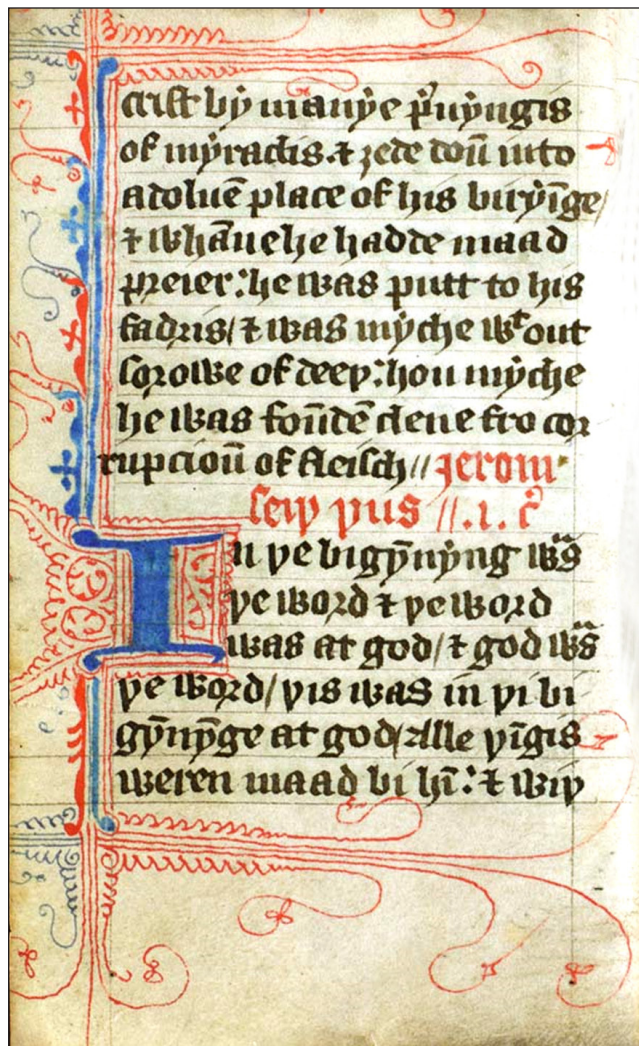 crist bẏ manẏe p̱uẏngis
of mẏraclis. ⁊ ȝede doū into
a doluē place of his biriȳge/
⁊ whāne he hadde maad
preier: he was putt to his
fadris/ ⁊ was mẏche wᵗout
sorowe of deeþ: hou mẏche
he was foūdē clene fro cor
rupcioū of fleisch// Jerom
seiþ þus //.i. cͣ
In þe bigẏnẏng wᵃs
þe word ⁊ þe word
was at god/ ⁊ god wᵃs
þe word/ þis was in þi bi
gȳnȳge at god/ Alle þīgis
weren maad bi hī: ⁊ wiþ